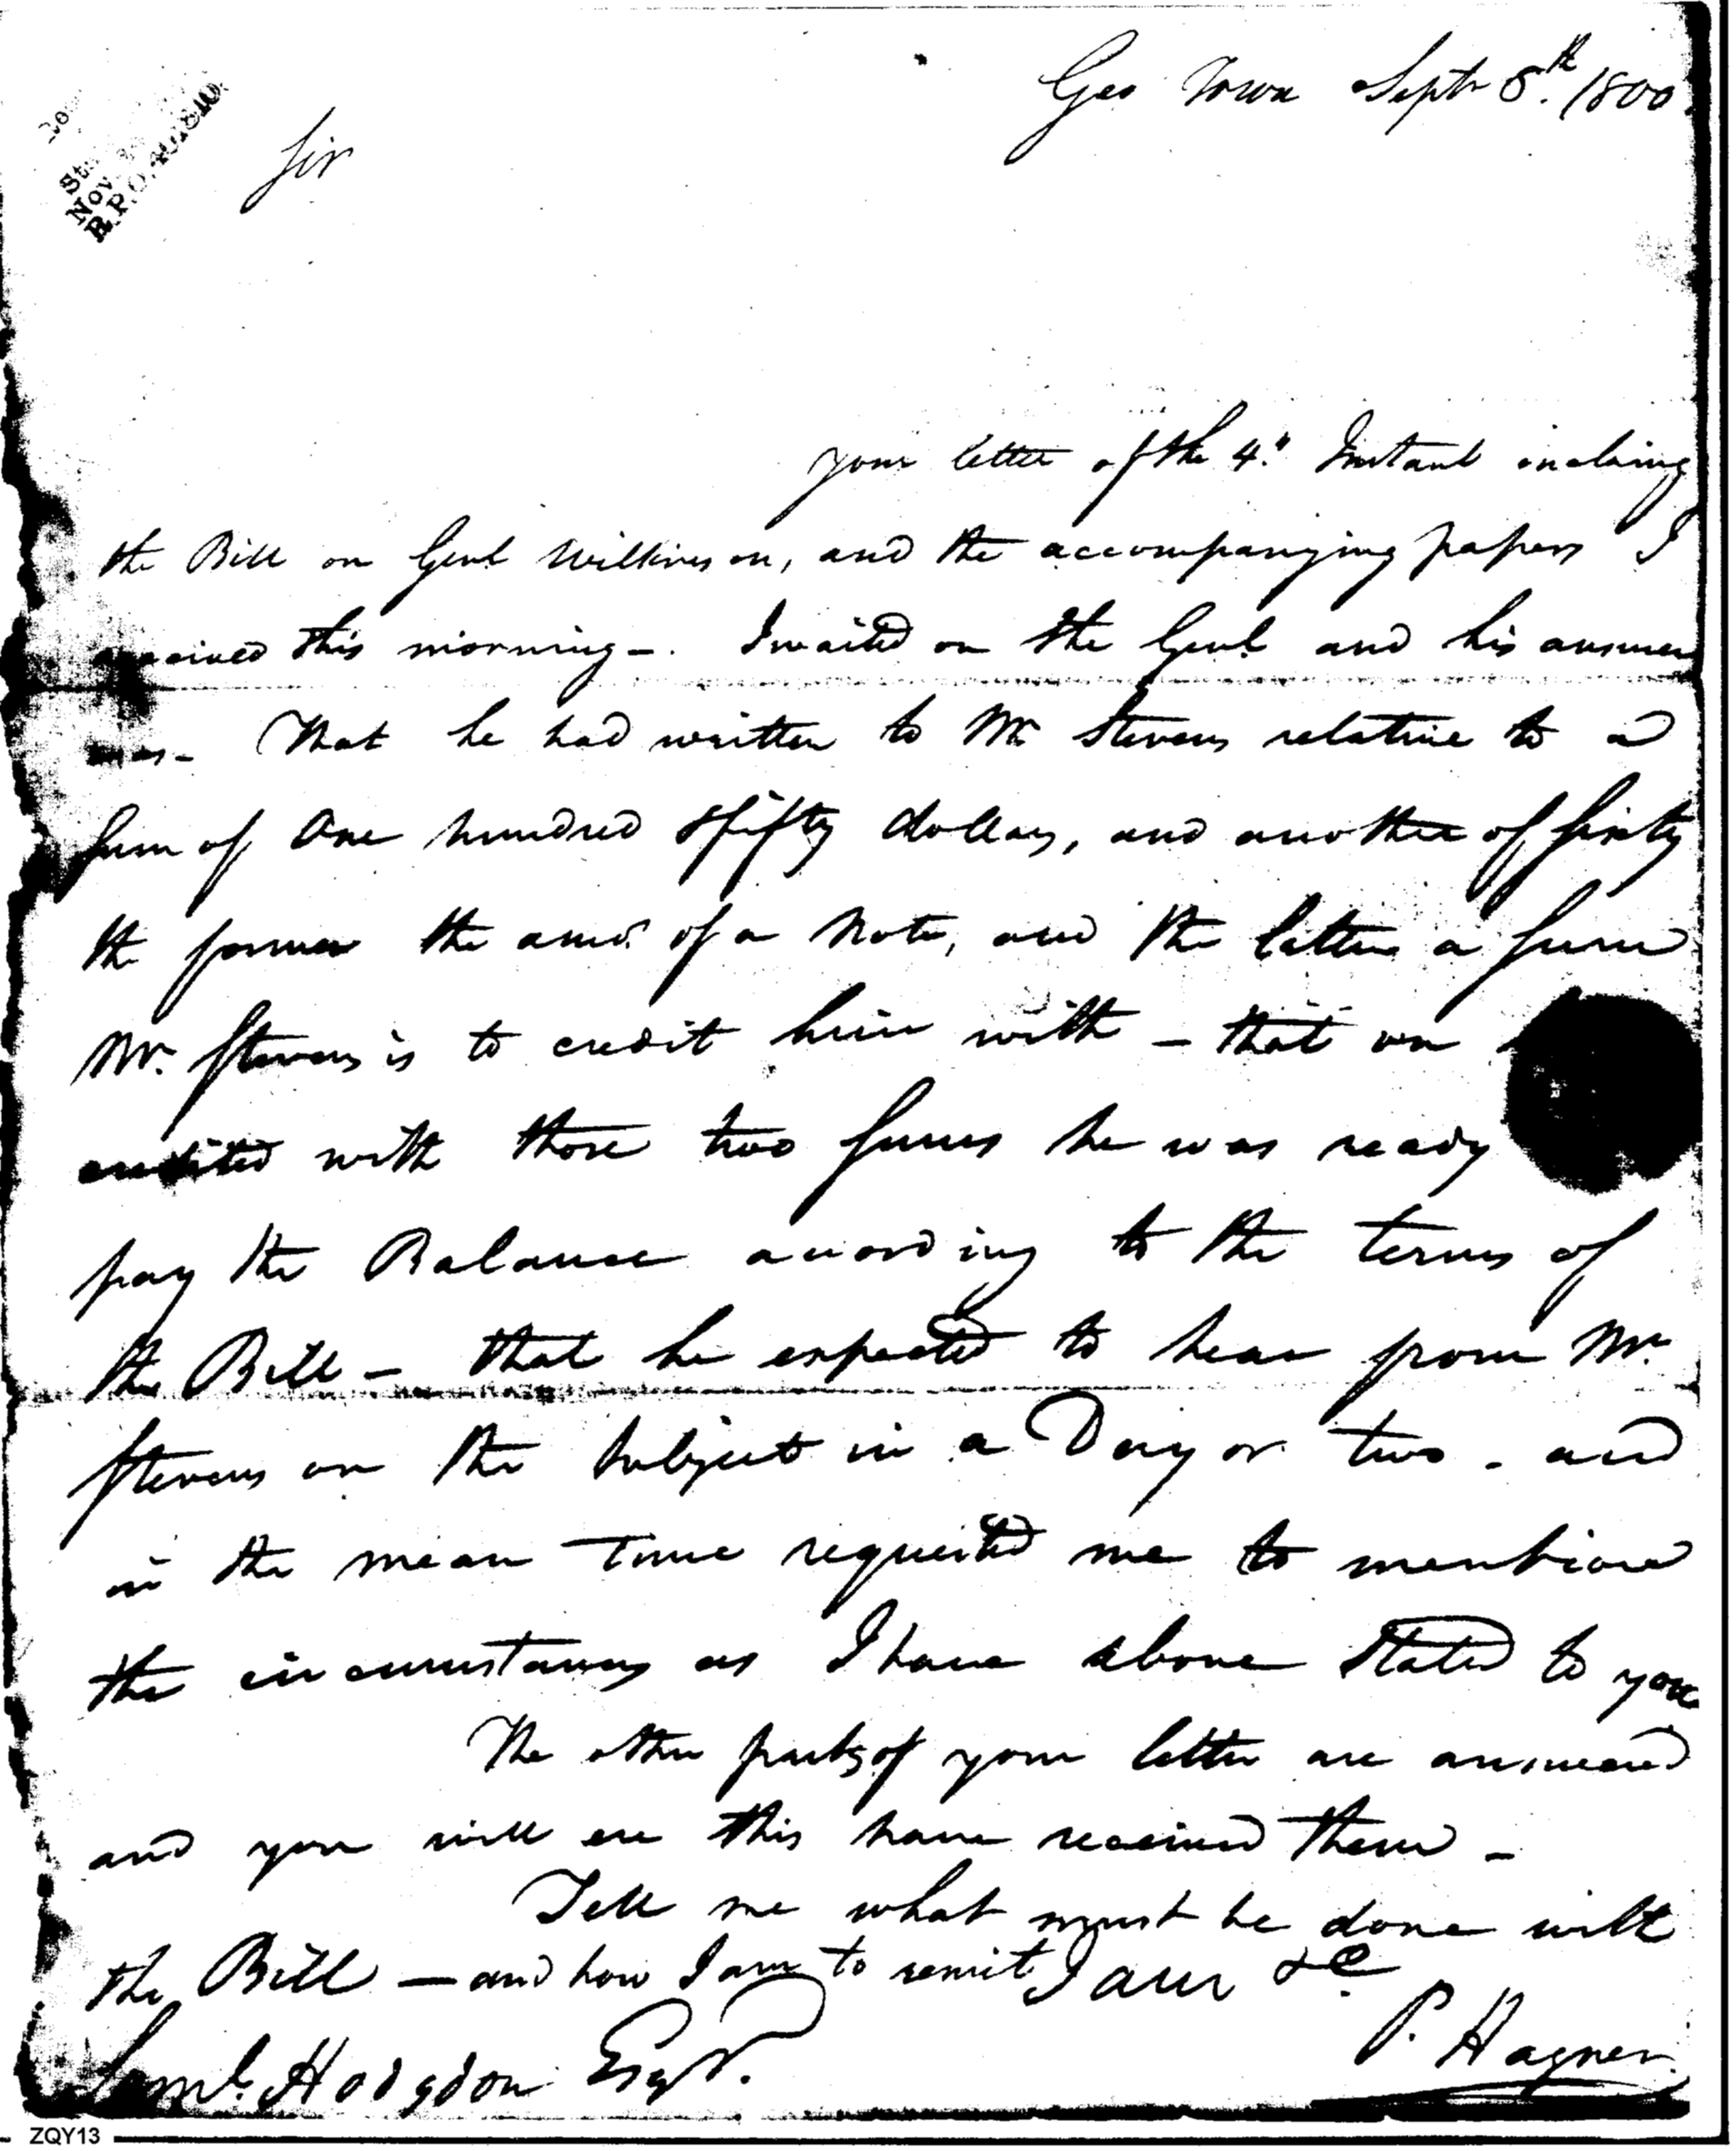 Geo Town Septr 8th. 1800
Sir
your letter of the 4." Instant inclosing
the Bill on Genl Wilkinson, and the accompanying papers I
received this morning -. I waited on the Genl and his answer
was - That he had written to Mr Stevens relative to a
Sum of One hundred & fifty dollars, and another of Sixty
the former the amot. of a Note, and the latter a Sum
Mr. Stevens is to credit him with - that on
credited with those two Sums he was ready
pay the Balance according to the terms of
the Bill - that he expected to hear from Mr.
Stevens on the Subject in a Day or two - and
in the mean Time requested me to mention
the circumstances as I have above Stated to you
The other parts of your letter are answered
and you will ere this have received them -
Tell me what must be done with
the Bill - and how I am to remit I am &c
P. Hagner
Saml. Hodgdon Esqr.
ZQY13